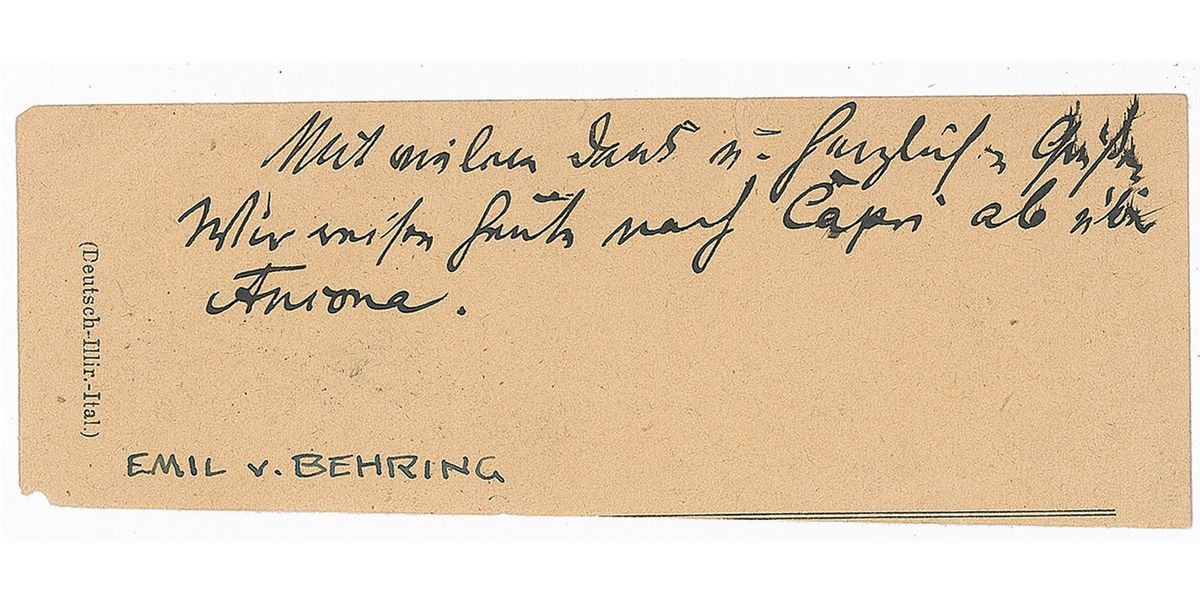 Mit vielem Dank u. herzlichen Grüßen
Wir reisen heute nach Capri ab über
Ancona.
(Deutsch-Illir.-Ital.)
EMIL v. BEHRING